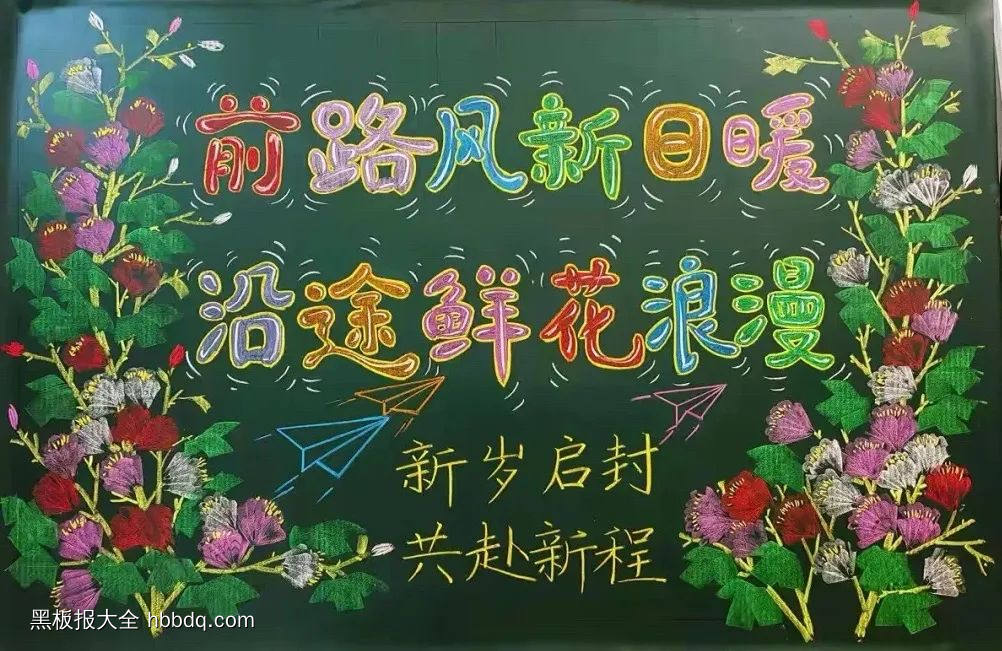 前路风新日暖
沿途鲜花浪漫
新岁启封
共赴新程
黑板报大全 hbbdq.com